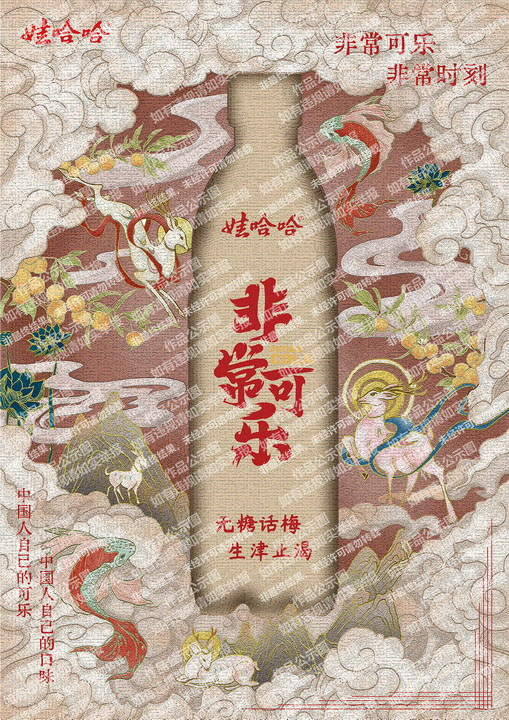 娃哈哈
非常可乐
非常时刻
娃哈哈
非
常可
乐
无糖话梅
生津止渴
中国人自己的可乐
中国人自己的口味
作品公示图
如有违规请如实举报
未经许可请勿转载